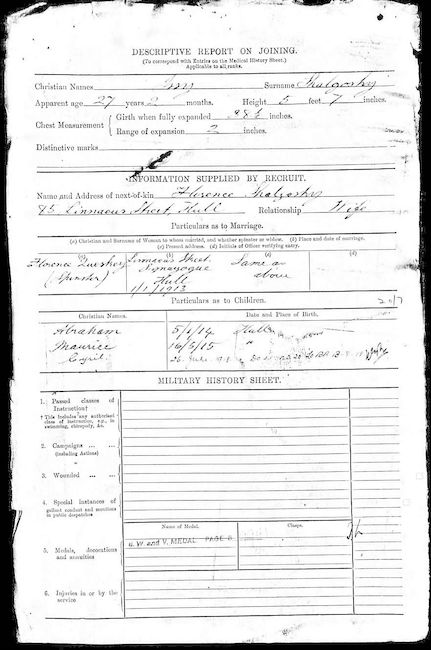 DESCRIPTIVE REPORT ON JOINING.
(To correspond with Entries on the Medical History Sheet.)
Applicable to all ranks.
Christian Names Surname
Apparent age 27 years 2 months. Height 5 feet 7 inches.
Chest Measurement { Girth when fully expanded 38½ inches.
Range of expansion 2 inches.
Distinctive marks
INFORMATION SUPPLIED BY RECRUIT.
Name and Address of next-of-kin Florence
85 Linnaeus Street, Hull Relationship Wife
Particulars as to Marriage.
(a) Christian and Surname of Woman to whom married, and whether spinster or widow. (b) Place and date of marriage.
(c) Present address. (d) Initials of Officer verifying entry.
(a) (b) (c) (d)
Florence Linnaeus Street Same as
(Spinster) Synagogue above
Hull
1/1/1913
Particulars as to Children.
Christian Names. Date and Place of Birth.
Abraham 5/1/14 Hull
Maurice 16/5/15 "
Cyril
MILITARY HISTORY SHEET.
1. Passed classes of
Instruction†
† This includes any authorised
class of instruction, e.g., in
swimming, chiropody, &c.
2. Campaigns ... ...
(including Actions)
"
3. Wounded ... ...
4. Special instances of
gallant conduct and mentions
in public despatches
Name of Medal. Clasps.
5. Medals, decorations
and annuities
B. W. and V. MEDAL PAGE
6. Injuries in or by the
service